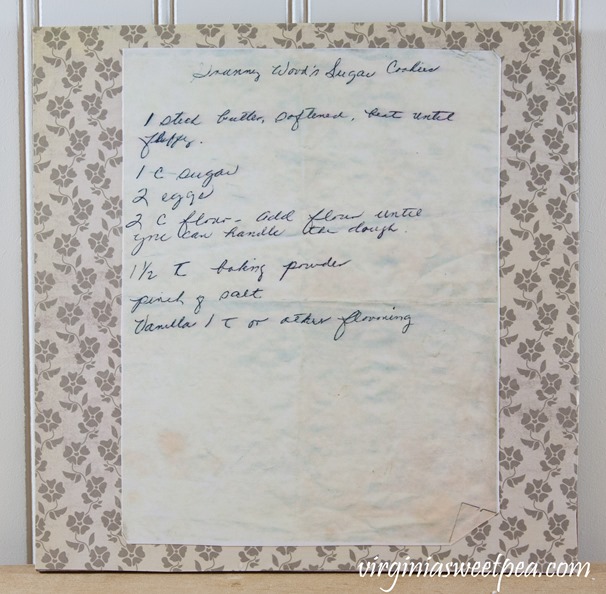 Granny Wood's Sugar Cookies
1 stick butter, softened, beat until
fluffy.
1 C sugar
2 eggs
2 C flour - add flour until
you can handle the dough.
1 1/2 T baking powder
pinch of salt
Vanilla 1 T or other flavoring
virginiasweetpea.com